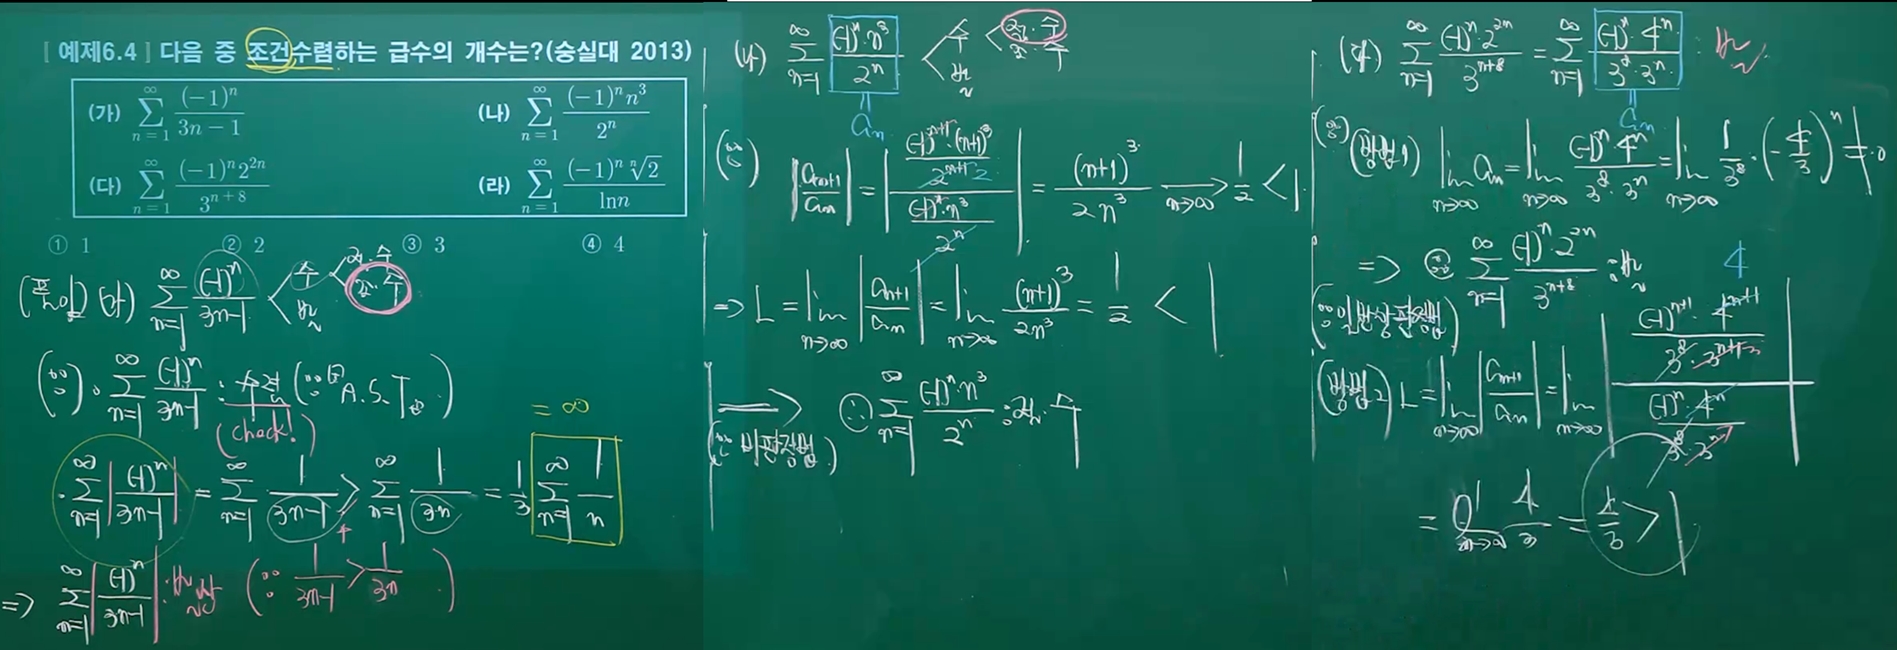 [ 예제6.4 ] 다음 중 조건수렴하는 급수의 개수는?(숭실대 2013)
(가) \sum_{n=1}^{∞} \frac{(-1)^n}{3n-1} (나) \sum_{n=1}^{∞} \frac{(-1)^n n^3}{2^n}
(다) \sum_{n=1}^{∞} \frac{(-1)^n 2^{2n}}{3^{n+8}} (라) \sum_{n=1}^{∞} \frac{(-1)^n \sqrt[n]{2}}{\ln n}
① 1 ② 2 ③ 3 ④ 4
(풀이) (가) \sum_{n=1}^{∞} \frac{(-1)^n}{3n-1} < 수 < 절·수
조·수
발
(∵) · \sum_{n=1}^{∞} \frac{(-1)^n}{3n-1} : 수렴 (∵ A.S.T)
(check!)
= ∞
· \sum_{n=1}^{∞} |\frac{(-1)^n}{3n-1}| = \sum_{n=1}^{∞} \frac{1}{3n-1} > \sum_{n=1}^{∞} \frac{1}{3n} = \frac{1}{3} \sum_{n=1}^{∞} \frac{1}{n}
⇒ \sum_{n=1}^{∞} |\frac{(-1)^n}{3n-1}| : 발산 (∵ \frac{1}{3n-1} > \frac{1}{3n})
(나) \sum_{n=1}^{∞} \frac{(-1)^n · n^3}{2^n} < 수 < 절·수
조·수
발
a_n
(∵) |\frac{a_{n+1}}{a_n}| = |\frac{\frac{(-1)^{n+1} · (n+1)^3}{2^{n+1}}}{\frac{(-1)^n · n^3}{2^n}}| = \frac{(n+1)^3}{2n^3} → \frac{1}{2} < 1
n→∞
⇒ L = \lim_{n→∞} |\frac{a_{n+1}}{a_n}| = \lim_{n→∞} \frac{(n+1)^3}{2n^3} = \frac{1}{2} < 1
⇒ ∴ \sum_{n=1}^{∞} \frac{(-1)^n · n^3}{2^n} : 절·수
(∵ 비판정법)
(다) \sum_{n=1}^{∞} \frac{(-1)^n · 2^{2n}}{3^{n+8}} = \sum_{n=1}^{∞} \frac{(-1)^n · 4^n}{3^8 · 3^n} : 발
a_n
(∵) (방법1) \lim_{n→∞} a_n = \lim_{n→∞} \frac{(-1)^n 4^n}{3^8 · 3^n} = \lim_{n→∞} \frac{1}{3^8} · (-\frac{4}{3})^n ≠ 0
⇒ ∴ \sum_{n=1}^{∞} \frac{(-1)^n · 2^{2n}}{3^{n+8}} : 발
(∵ 발산판정법)
4
(방법2) L = \lim_{n→∞} |\frac{a_{n+1}}{a_n}| = \lim_{n→∞} |\frac{\frac{(-1)^{n+1} · 4^{n+1}}{3^8 · 3^{n+1}}}{\frac{(-1)^n · 4^n}{3^8 · 3^n}}|
= \lim_{n→∞} \frac{4}{3} = \frac{4}{3} > 1